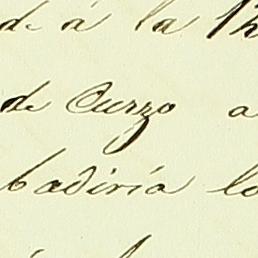 de á la
de Curzo a
badiría lo